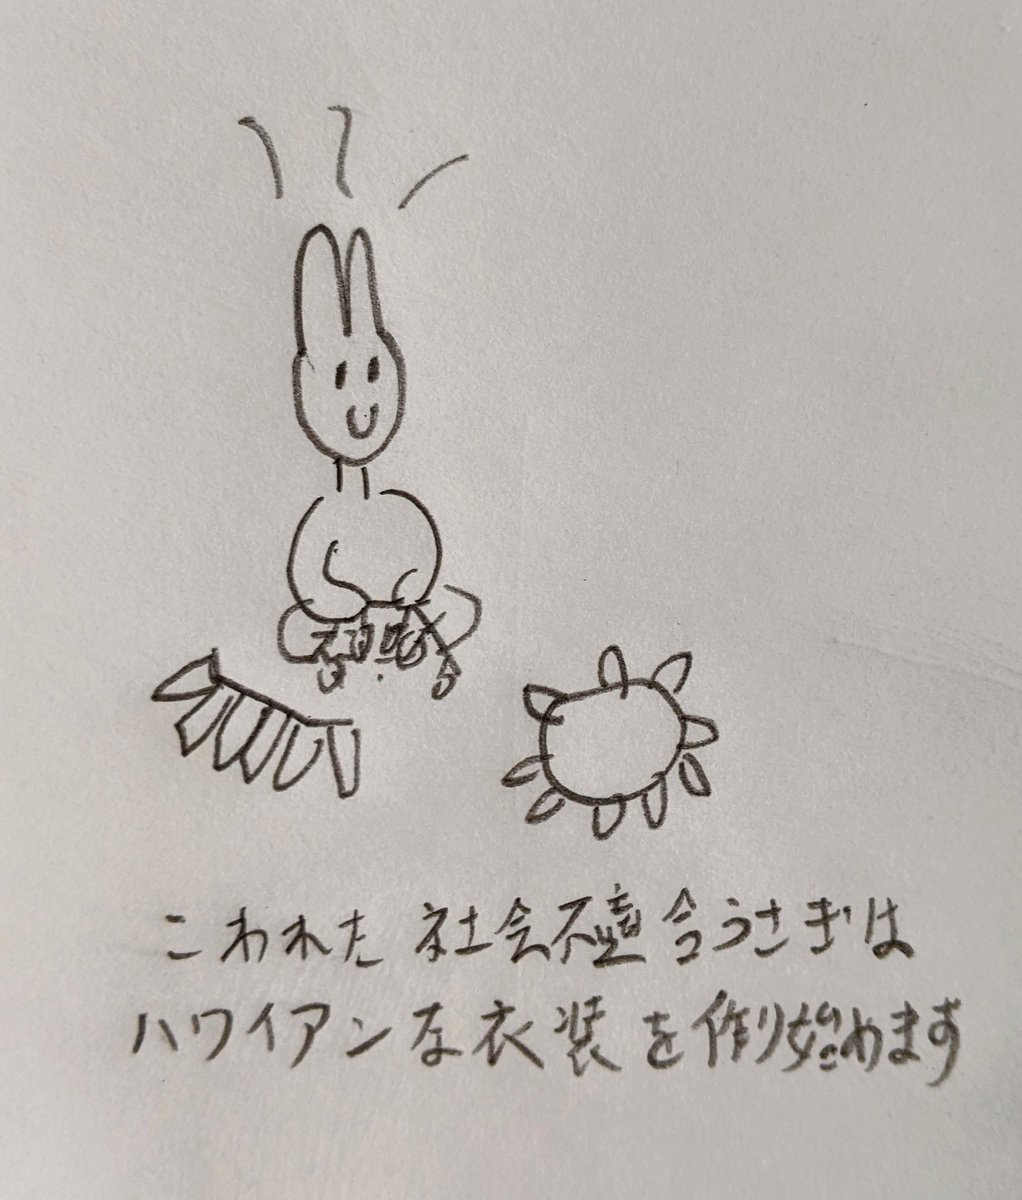 こわれた社会不適合うさぎは
ハワイアンな衣装を作り始めます